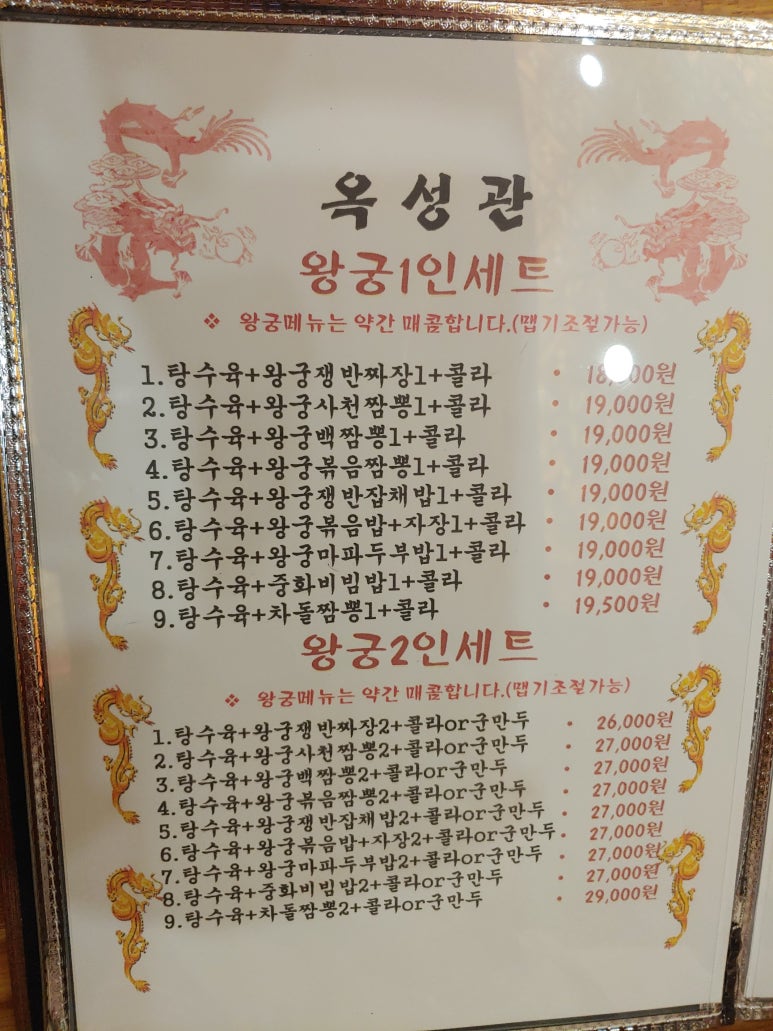 옥성관
왕궁1인세트
❖ 왕궁메뉴는 약간 매콤합니다.(맵기조절가능)
1.탕수육+왕궁쟁반짜장1+콜라 •
2.탕수육+왕궁사천짬뽕1+콜라 • 19,000원
3.탕수육+왕궁백짬뽕1+콜라 • 19,000원
4.탕수육+왕궁볶음짬뽕1+콜라 • 19,000원
5.탕수육+왕궁쟁반잡채밥1+콜라 • 19,000원
6.탕수육+왕궁볶음밥+자장1+콜라 • 19,000원
7.탕수육+왕궁마파두부밥1+콜라 • 19,000원
8.탕수육+중화비빔밥1+콜라 • 19,000원
9.탕수육+차돌짬뽕1+콜라 • 19,500원
왕궁2인세트
❖ 왕궁메뉴는 약간 매콤합니다.(맵기조절가능)
1.탕수육+왕궁쟁반짜장2+콜라or군만두 • 26,000원
2.탕수육+왕궁사천짬뽕2+콜라or군만두 • 27,000원
3.탕수육+왕궁백짬뽕2+콜라or군만두 • 27,000원
4.탕수육+왕궁볶음짬뽕2+콜라or군만두 • 27,000원
5.탕수육+왕궁쟁반잡채밥2+콜라or군만두 • 27,000원
6.탕수육+왕궁볶음밥+자장2+콜라or군만두 • 27,000원
7.탕수육+왕궁마파두부밥2+콜라or군만두 • 27,000원
8.탕수육+중화비빔밥2+콜라or군만두 • 27,000원
9.탕수육+차돌짬뽕2+콜라or군만두 • 29,000원